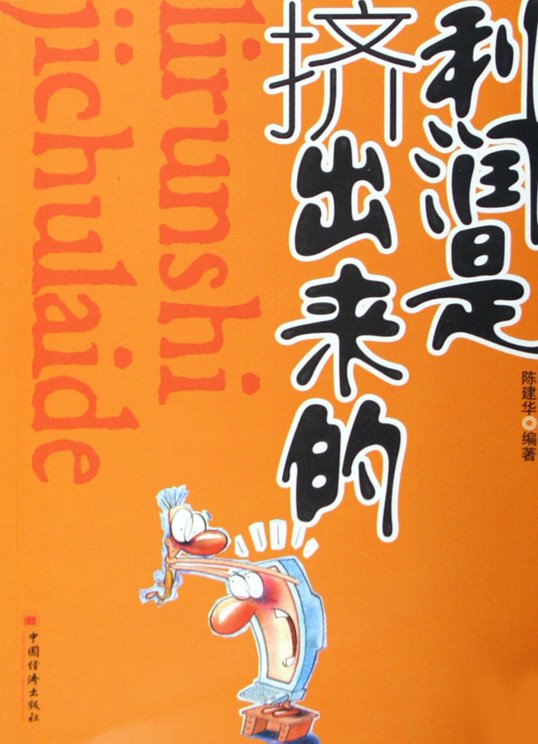 利润是
挤出来的
陈建华◎编著
lirunshi
jichulaide
中国经济出版社